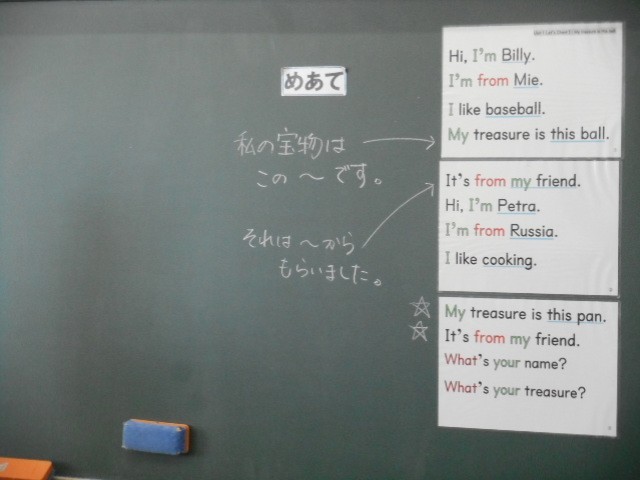 めあて
私の宝物は
この〜です。
それは〜から
もらいました。
Hi, I'm Billy.
I'm from Mie.
I like baseball.
My treasure is this ball.
It's from my friend.
Hi, I'm Petra.
I'm from Russia.
I like cooking.
☆ My treasure is this pan.
☆ It's from my friend.
What's your name?
What's your treasure?